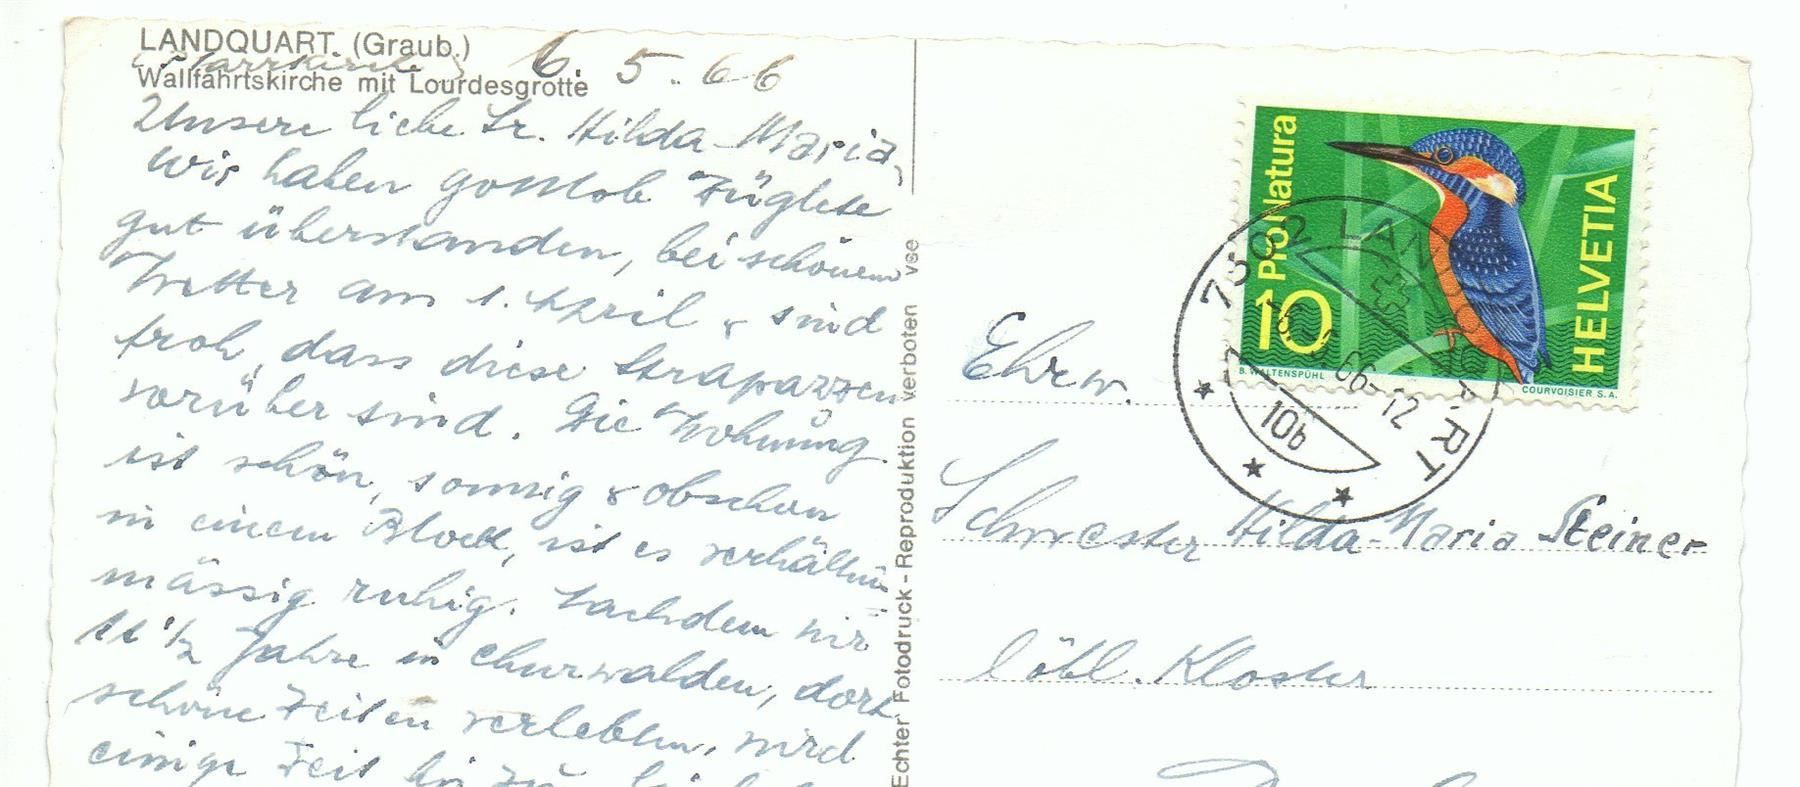 LANDQUART. (Graub.)
(Pfarrkirche) 6. 5. 66
Wallfahrtskirche mit Lourdesgrotte
Unsere liebe Sr. Hilda-Maria,
Wir haben gottlob Züglete
gut überstanden, bei schönem
Wetter am 1. April & sind
froh, dass diese Strapazzen
vorüber sind. Die Wohnung
ist schön, sonnig & obschon
in einem Block, ist es verhältnis
mässig ruhig. Nachdem wir
11 1/2 Jahre in Churwalden, dort
schöne Zeiten verlebten, wird
einige Zeit
Echter Fotodruck - Reproduktion verboten vse
Pro Natura
10
HELVETIA
B. WALTENSPÜHL
COURVOISIER S.A.
7302 LANDQUART
66-12
10b
Ehrw.
Schwester Hilda-Maria Steiner
löbl. Kloster